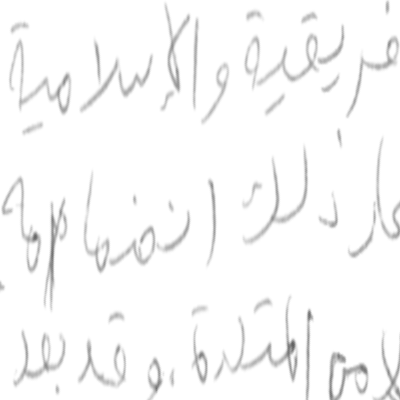 فريقية والإسلامية
ذلك انضمامه
المتحدة، وقد بعد